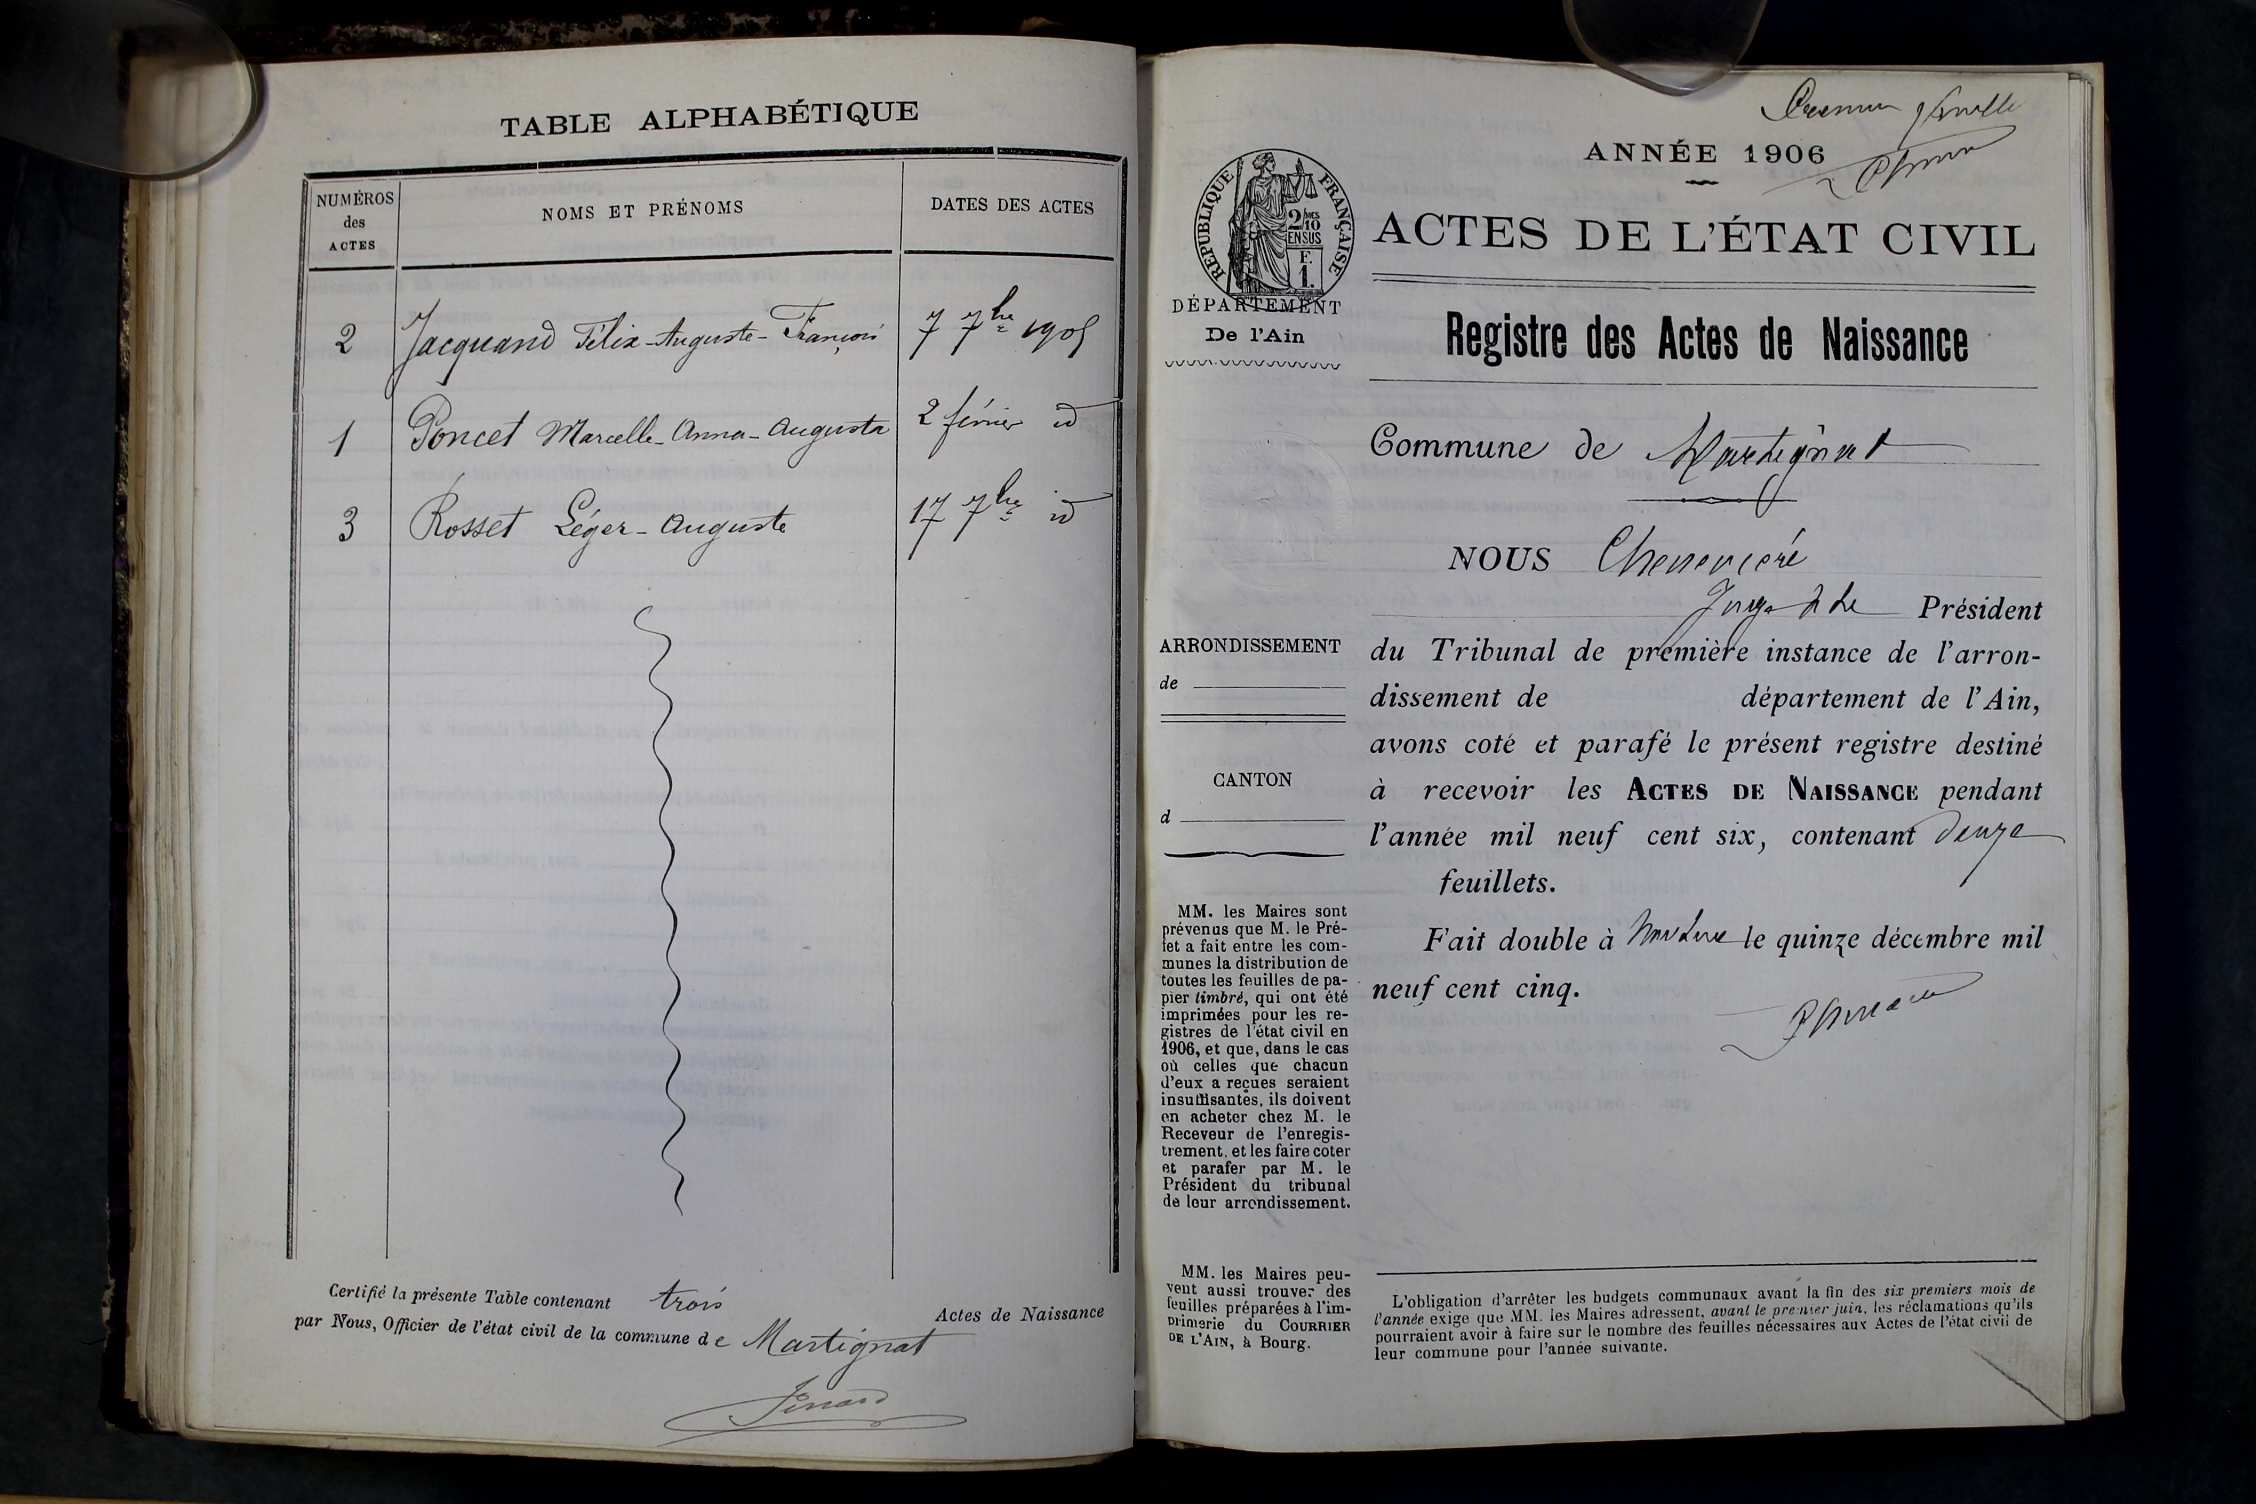 TABLE ALPHABÉTIQUE
NUMÉROS
des
ACTES
NOMS ET PRÉNOMS
DATES DES ACTES
2 Jacquand Félix-Auguste-François 7 7bre 1905
1 Poncet Marcelle-Anna-Augusta 2 février id
3 Rosset Léger-Auguste 17 7bre id
Certifié la présente Table contenant trois Actes de Naissance
par Nous, Officier de l'état civil de la commune de Martignat
ANNÉE 1906
RÉPUBLIQUE FRANÇAISE
2/10
EN SUS
F.
1.
DÉPARTEMENT
De l'Ain
ACTES DE L'ÉTAT CIVIL
Registre des Actes de Naissance
Commune de Martignat
NOUS
Président
du Tribunal de première instance de l'arron-
dissement de département de l'Ain,
avons coté et parafé le présent registre destiné
à recevoir les ACTES DE NAISSANCE pendant
l'année mil neuf cent six, contenant
feuillets.
Fait double à Nantua le quinze décembre mil
neuf cent cinq.
ARRONDISSEMENT
de
CANTON
d
MM. les Maires sont
prévenus que M. le Pré-
fet a fait entre les com-
munes la distribution de
toutes les feuilles de pa-
pier timbré, qui ont été
imprimées pour les re-
gistres de l'état civil en
1906, et que, dans le cas
où celles que chacun
d'eux a reçues seraient
insuffisantes, ils doivent
en acheter chez M. le
Receveur de l'enregis-
trement, et les faire coter
et parafer par M. le
Président du tribunal
de leur arrondissement.
MM. les Maires peu-
vent aussi trouver des
feuilles préparées à l'im-
primerie du COURRIER
DE L'AIN, à Bourg.
L'obligation d'arrêter les budgets communaux avant la fin des six premiers mois de
l'année exige que MM. les Maires adressent, avant le premier juin, les réclamations qu'ils
pourraient avoir à faire sur le nombre des feuilles nécessaires aux Actes de l'état civil de
leur commune pour l'année suivante.